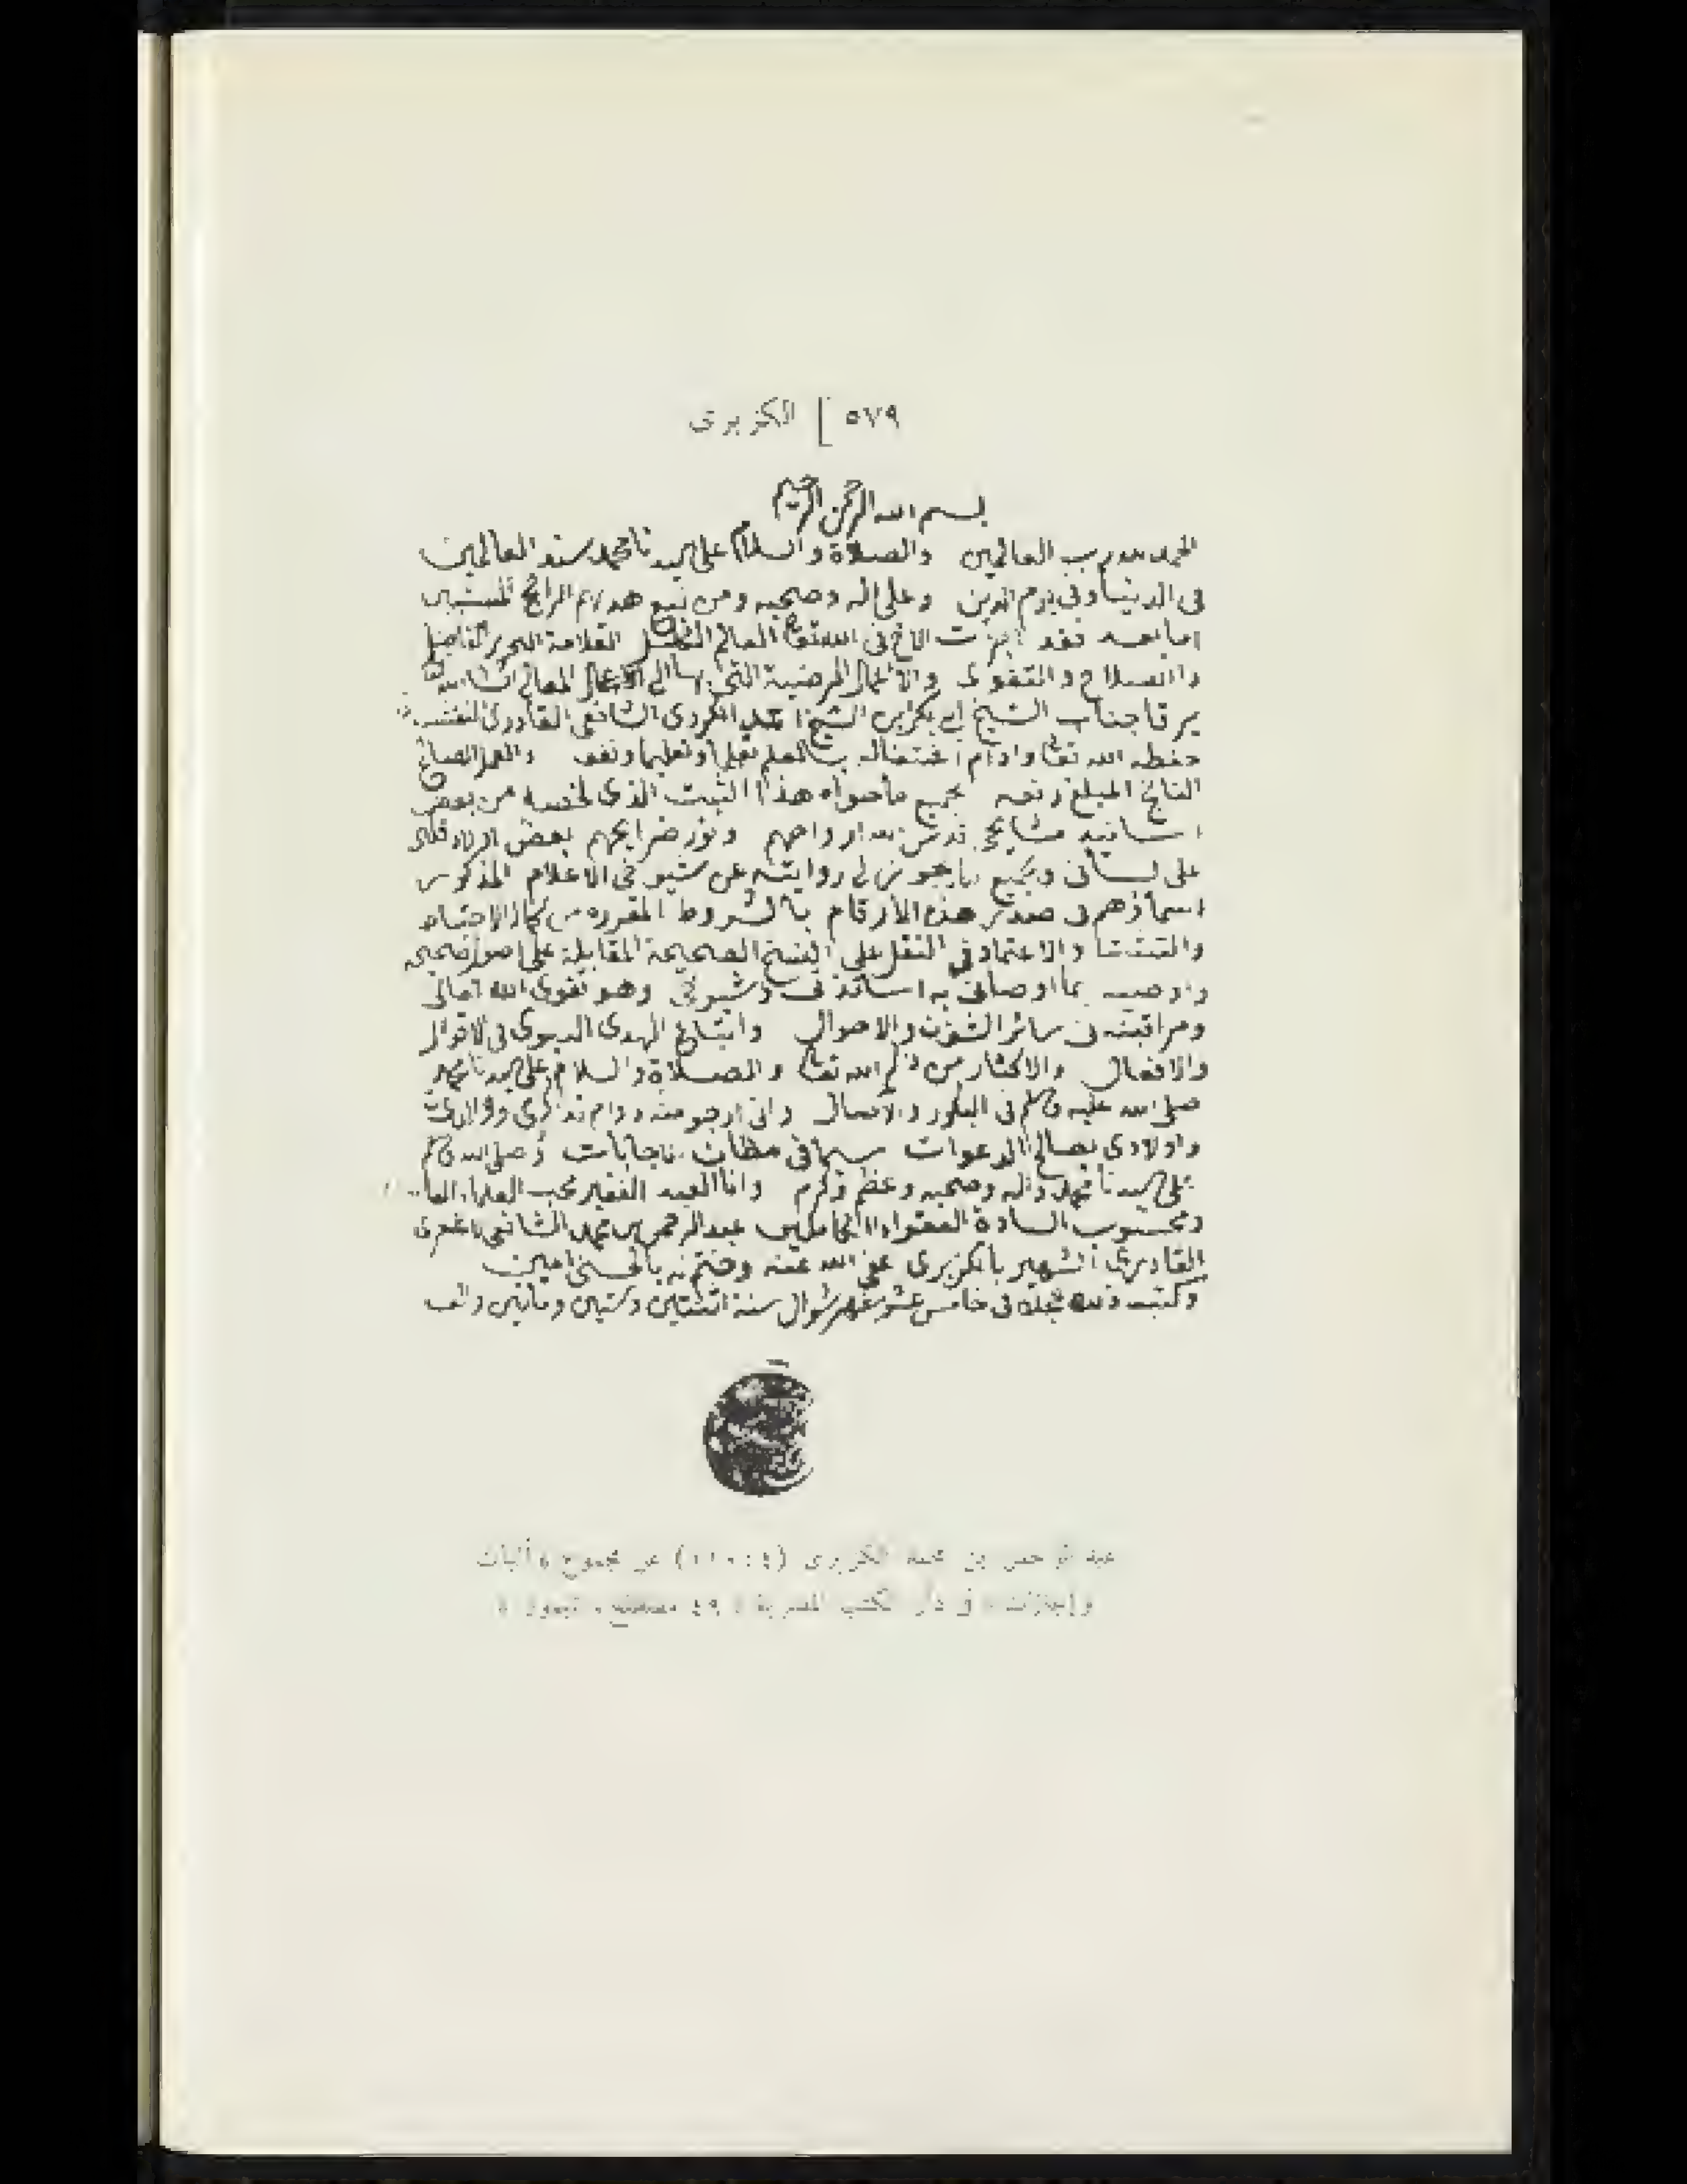 ٥٧٩ ] الكزبرى
بسم الله الرحمن الرحيم
الحمد لله رب العالمين والصلاة والسلام على سيدنا محمد سند العالمين
فى الدنيا وفى يوم الدين وعلى اله وصحبه ومن تبع هديهم
اما بعد فقد اجزت الاخ فى الله تعالى العالم العلامة النحرير الفاضل
والصلاح والتقوى والاعمال المرضية التى المعالى ان شاء الله
يرقا جناب الشيخ ابى بكر ابن الشيخ الكردى الشافعى القادرى النقشبندى
حفظه الله تعالى وادام اشتغاله بالعلم تعلما وتعليما ونفعه والعمل الصالح
المبلغ بجميع ما حواه هذا الثبت الذى لخصه من بعض
اسانيد مشايخى قدس الله ارواحهم ونور ضرايحهم بعض
على لسانى وبجميع ما يجوز لى روايته عن شيوخى الاعلام المذكور
اسماؤهم فى صدر هذه الارقام بالشروط المقرره من كمال الاحتياط
والتثبت والاعتماد فى النقل على النسخ الصحيحة المقابلة على اصول صحيحه
واوصيه بما اوصانى به اساتذتى وشيوخى وهو تقوى الله تعالى
ومراقبته فى سائر الشؤن والاحوال واتباع الهدى النبوى فى الاقوال
والافعال والاكثار من ذكر الله تعالى والصلاة والسلام على سيدنا محمد
صلى الله عليه وسلم فى البكور والآصال وانى ارجو منه دوام تذكرى ووالدى
واولادى بصالح الدعوات سيما فى مظان الاجابات وصلى الله وسلم
على سيدنا محمد واله وصحبه وعظم وكرم وانا العبد الفقير محب العلماء
ومحسوب السادة الفقراء الكاملين عبد الرحمن بن محمد الشافعى
القادرى الشهير بالكزبرى عفى الله عنه وختم له بالحسنى امين
وكتب ذلك بخطه فى خامس عشر شهر شوال سنة اثنتين وستين ومايتين والف
عبد الرحمن بن محمد الكزبرى عن مجموع « أثبات
وإجازات » فى دار الكتب المصرية « ٤٩ مصطلح ، تيمور »